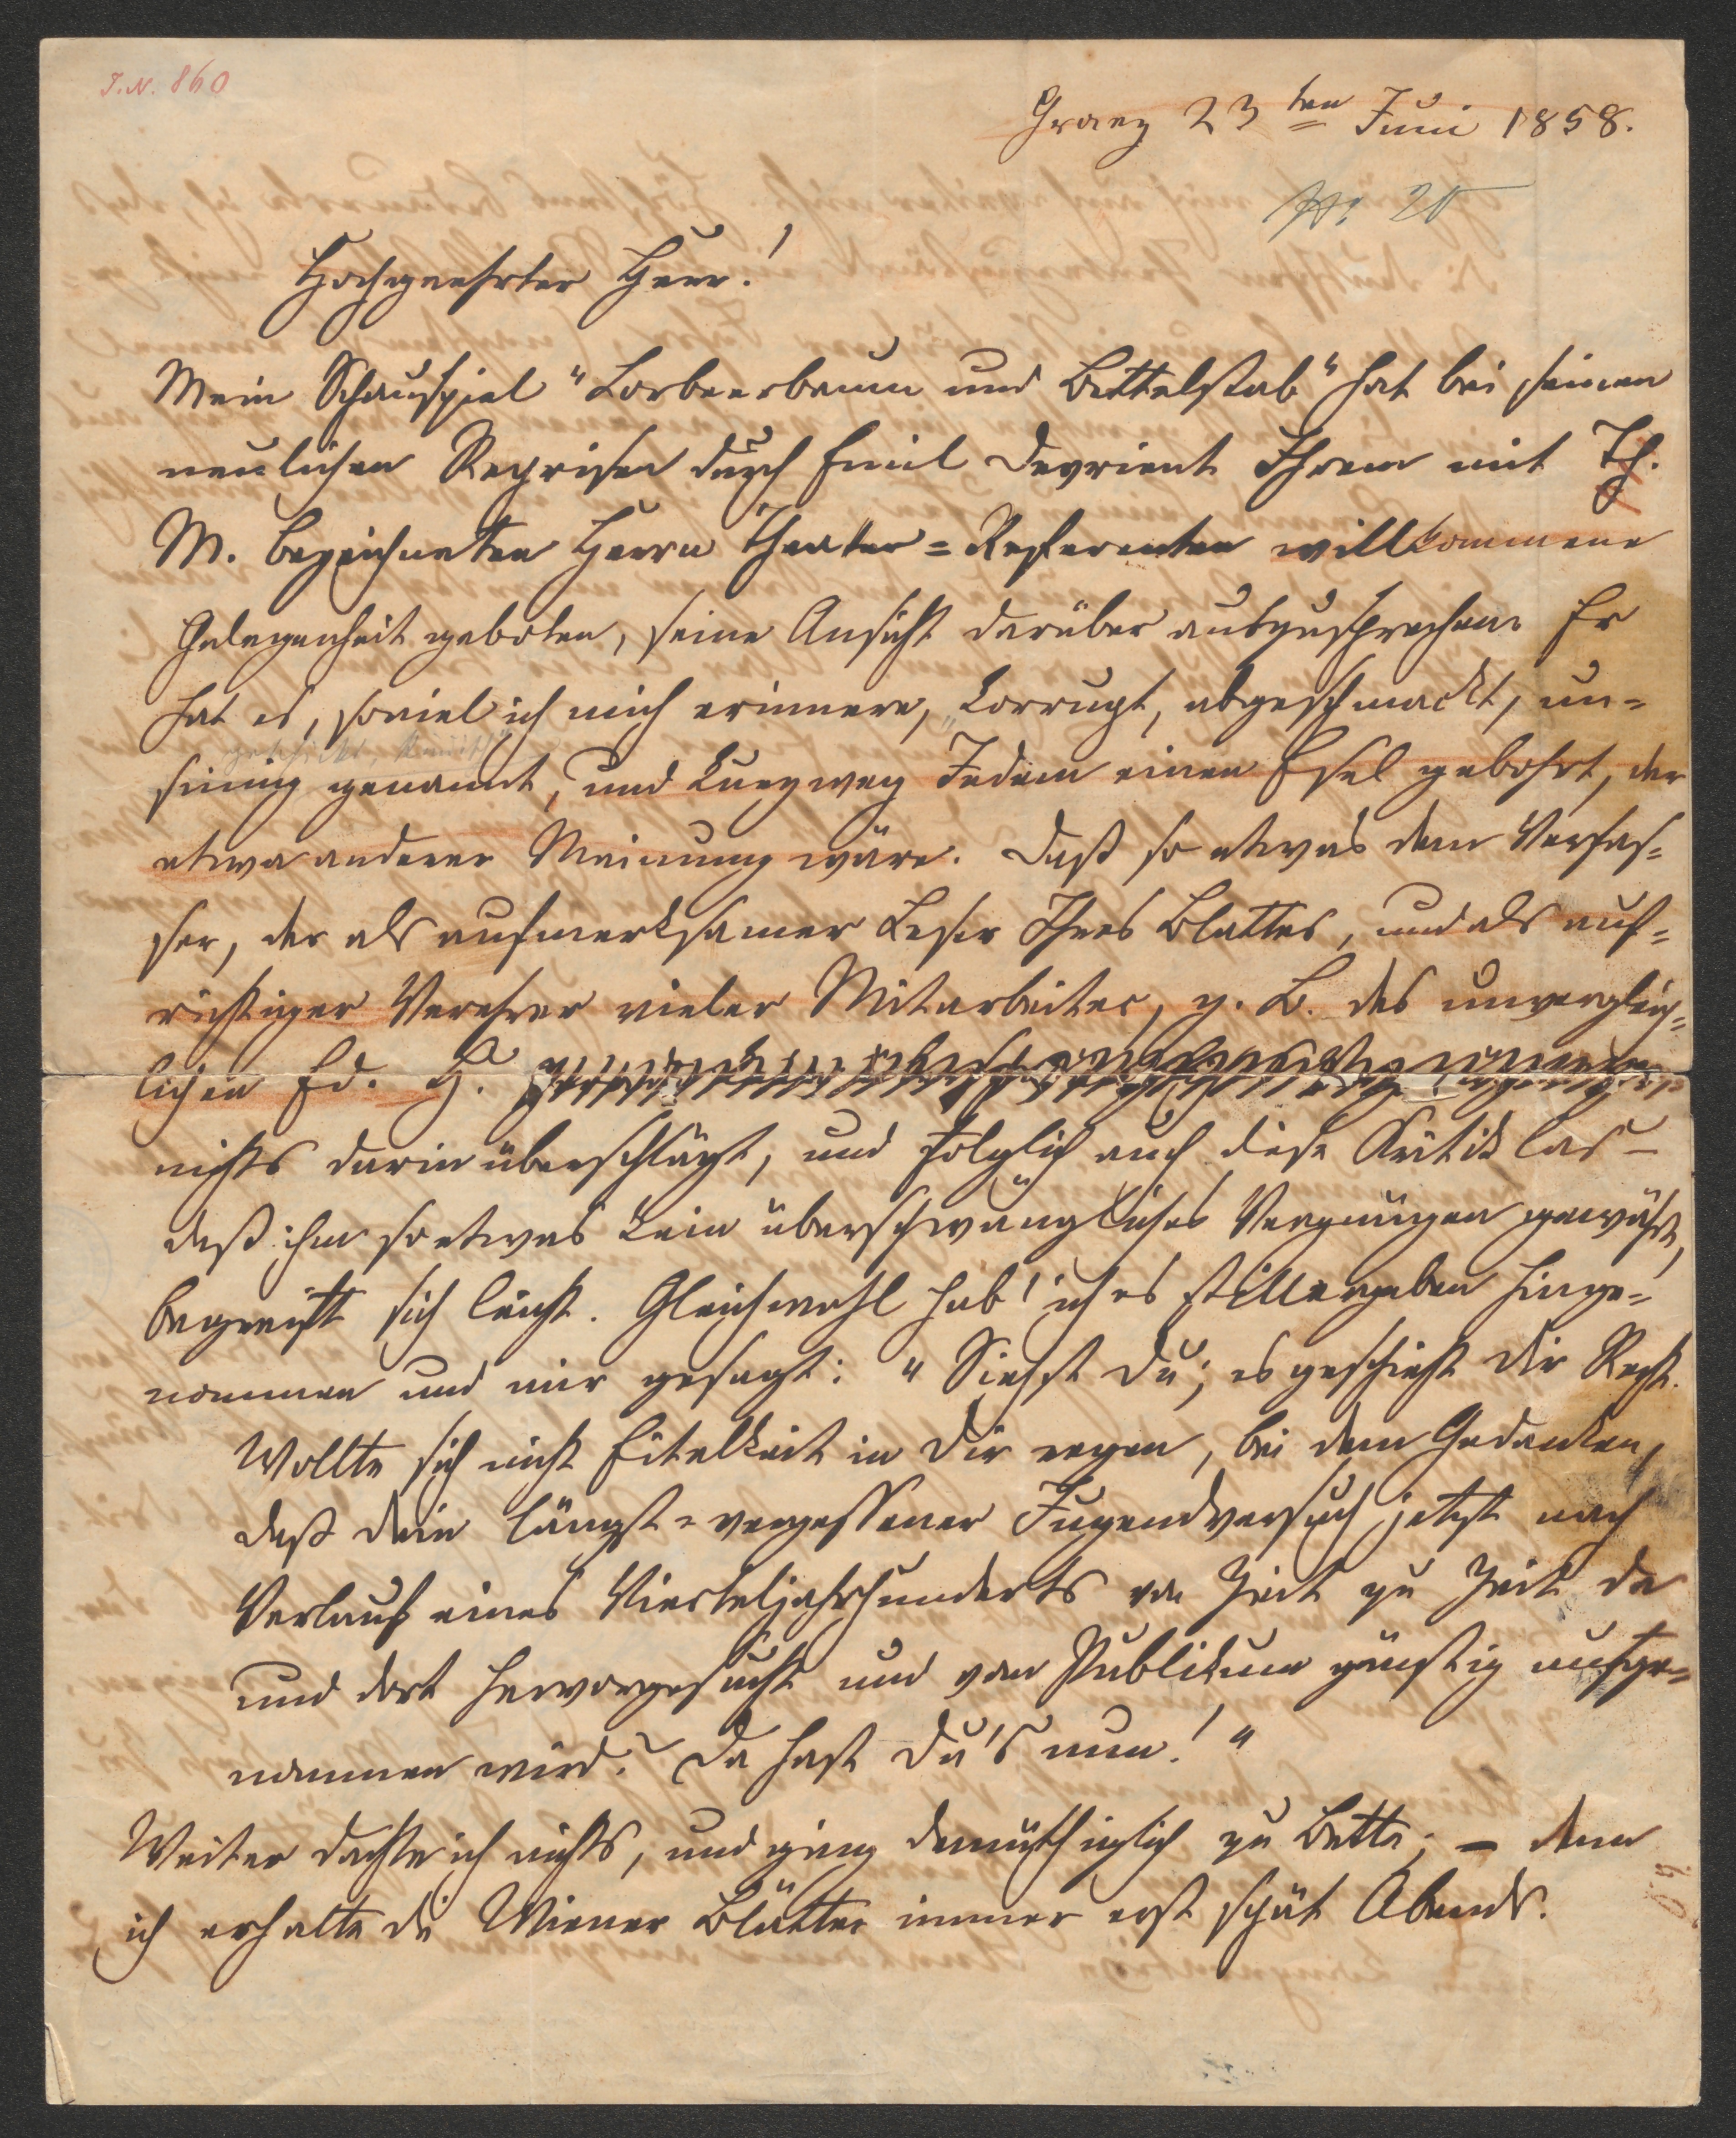 J.N. 860
Graez 23ten Juni 1858.
Hochgeehrter Herr!
Mein Schauspiel "Lorbeerbaum und Bettelstab" hat bei seinen
neulichen Reprisen durch Emil Devrient Ihrem mit Th.
M. bezeichneten Herrn Theater=Referenten willkommene
Gelegenheit geboten, seine Ansicht darüber auszusprechen. Er
hat es, soviel ich mich erinnere, „corrupt, abgeschmackt, un=
sinnig genannt, und kurzweg Jedem einen Esel gebohrt, der
etwa anderer Meinung wäre. Daß so etwas dem Verfas=
ser, der als aufmerksamer Leser Ihres Blattes, und als auf=
richtiger Verehrer vieler Mitarbeiter, z. B. des unvergleich=
lichen Ed. H.
nichts darin überschlägt, und folglich auch diese Kritik las –
daß ihm so etwas kein überschwängliches Vergnügen gewährt,
begreift sich leicht. Gleichwohl hab' ich es stillergeben hinge=
nommen und mir gesagt: "Siehst Du; es geschieht Dir Recht.
Wollte sich nicht Eitelkeit in Dir regen, bei dem Gedanken,
daß Dein längst=vergessener Jugendversuch jetzt nach
Verlauf eines Vierteljahrhunderts von Zeit zu Zeit da
und dort hervorgesucht und vom Publikum günstig aufge=
nommen wird? Da hast Du's nun!"
Weiter dachte ich nichts, und ging demüthiglich zu Bette; – denn
ich erhalte die Wiener Blätter immer erst spät Abends.